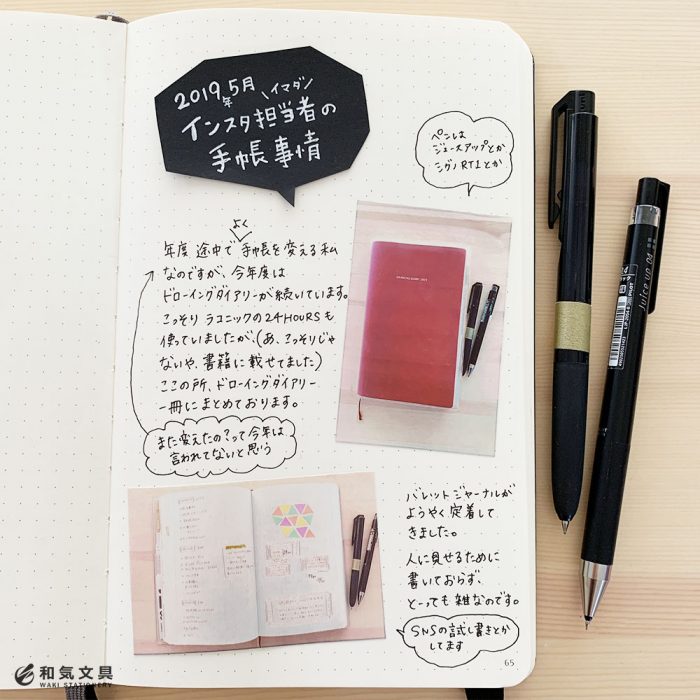 2019年5月 イマダン
インスタ担当者の
手帳事情
ペンは
ジュースアップとか
シグノRT1とか
よく
年度途中で手帳を変える私
なのですが、今年度は
ドローイングダイアリーが続いています。
こっそりラコニックの24HOURSも
使っていましたが、(あ、こっそりじゃ
ないや、書籍に載せてました)
ここの所、ドローイングダイアリー
一冊にまとめております。
また変えたの?って今年は
言われてないと思う
バレットジャーナルが
ようやく定着して
きました。
人に見せるために
書いておらず、
とっても雑なのです。
SNSの試し書きとか
してます
65
Juice up 04
和気文具
WAKI STATIONERY